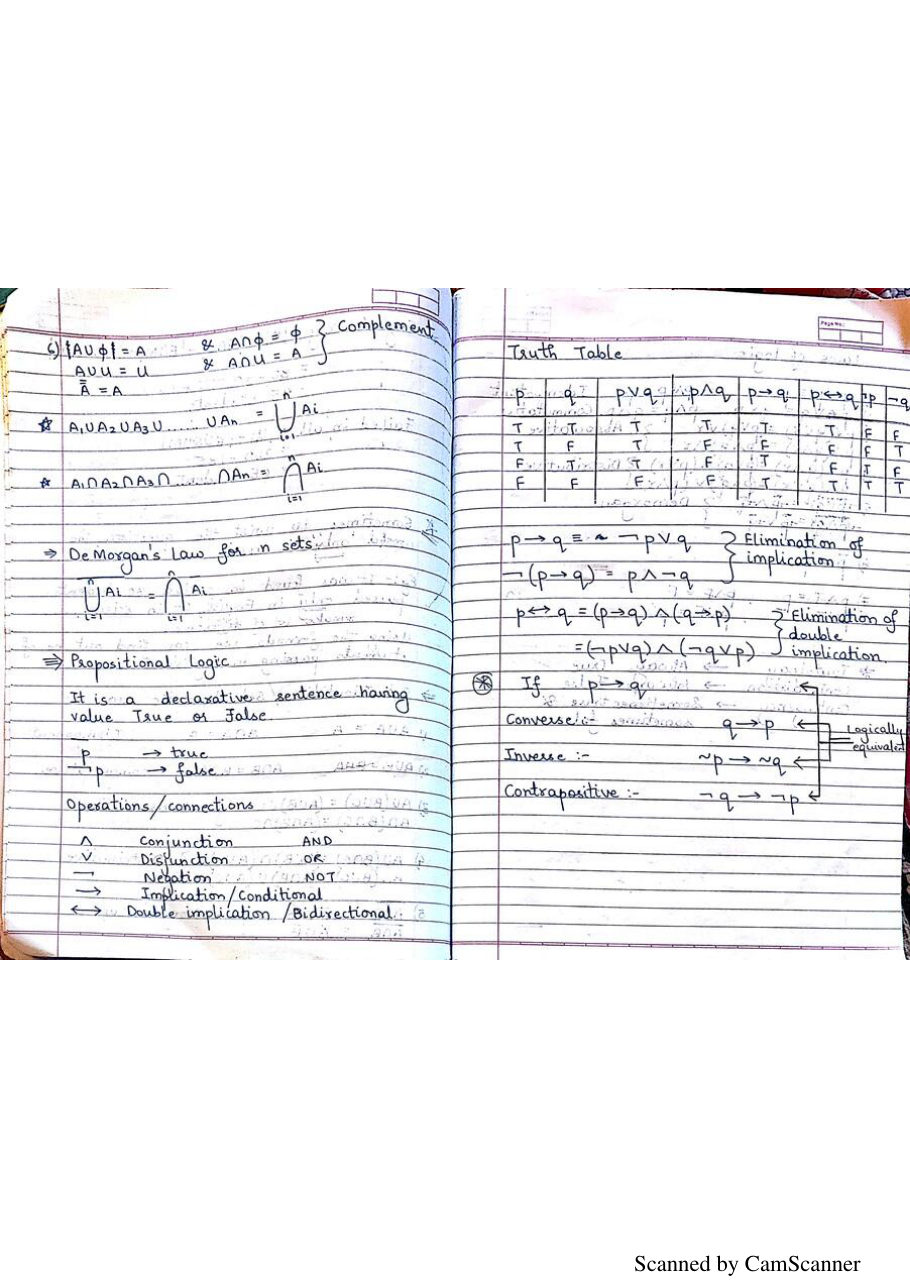 6) |A∪ϕ| = A & A∩ϕ = ϕ } Complement
A∪U = U & A∩U = A
A̿ = A
☆ A₁∪A₂∪A₃∪...... ∪An = ⋃ⁿᵢ₌₁ Ai
☆ A₁∩A₂∩A₃∩ ...... ∩An = ⋂ⁿᵢ₌₁ Ai
⇒ De Morgan's Law for n sets
‾⋃ⁿᵢ₌₁ Ai‾ = ⋂ⁿᵢ₌₁ A̅i
⇒ Propositional Logic
It is a declarative sentence having
value True or False
p → true
¬p → false
Operations/connections
∧ Conjunction AND
∨ Disjunction OR
¬ Negation NOT
→ Implication/Conditional
↔ Double implication /Bidirectional
Page No.:
Truth Table
p q p∨q p∧q p→q p↔q ¬p ¬q
T T T T T T F F
T F T F F F F T
F T T F T F T F
F F F F T T T T
p → q ≡ ~ ¬p∨q } Elimination of
implication
¬(p→q) = p∧¬q
p↔q = (p→q) ∧ (q→p) } Elimination of
double
= (¬p∨q) ∧ (¬q∨p) implication.
If p→q
Converse :- q→p
Logically
equivalent
Inverse :- ~p → ~q
Contrapositive :- ¬q → ¬p
Scanned by CamScanner